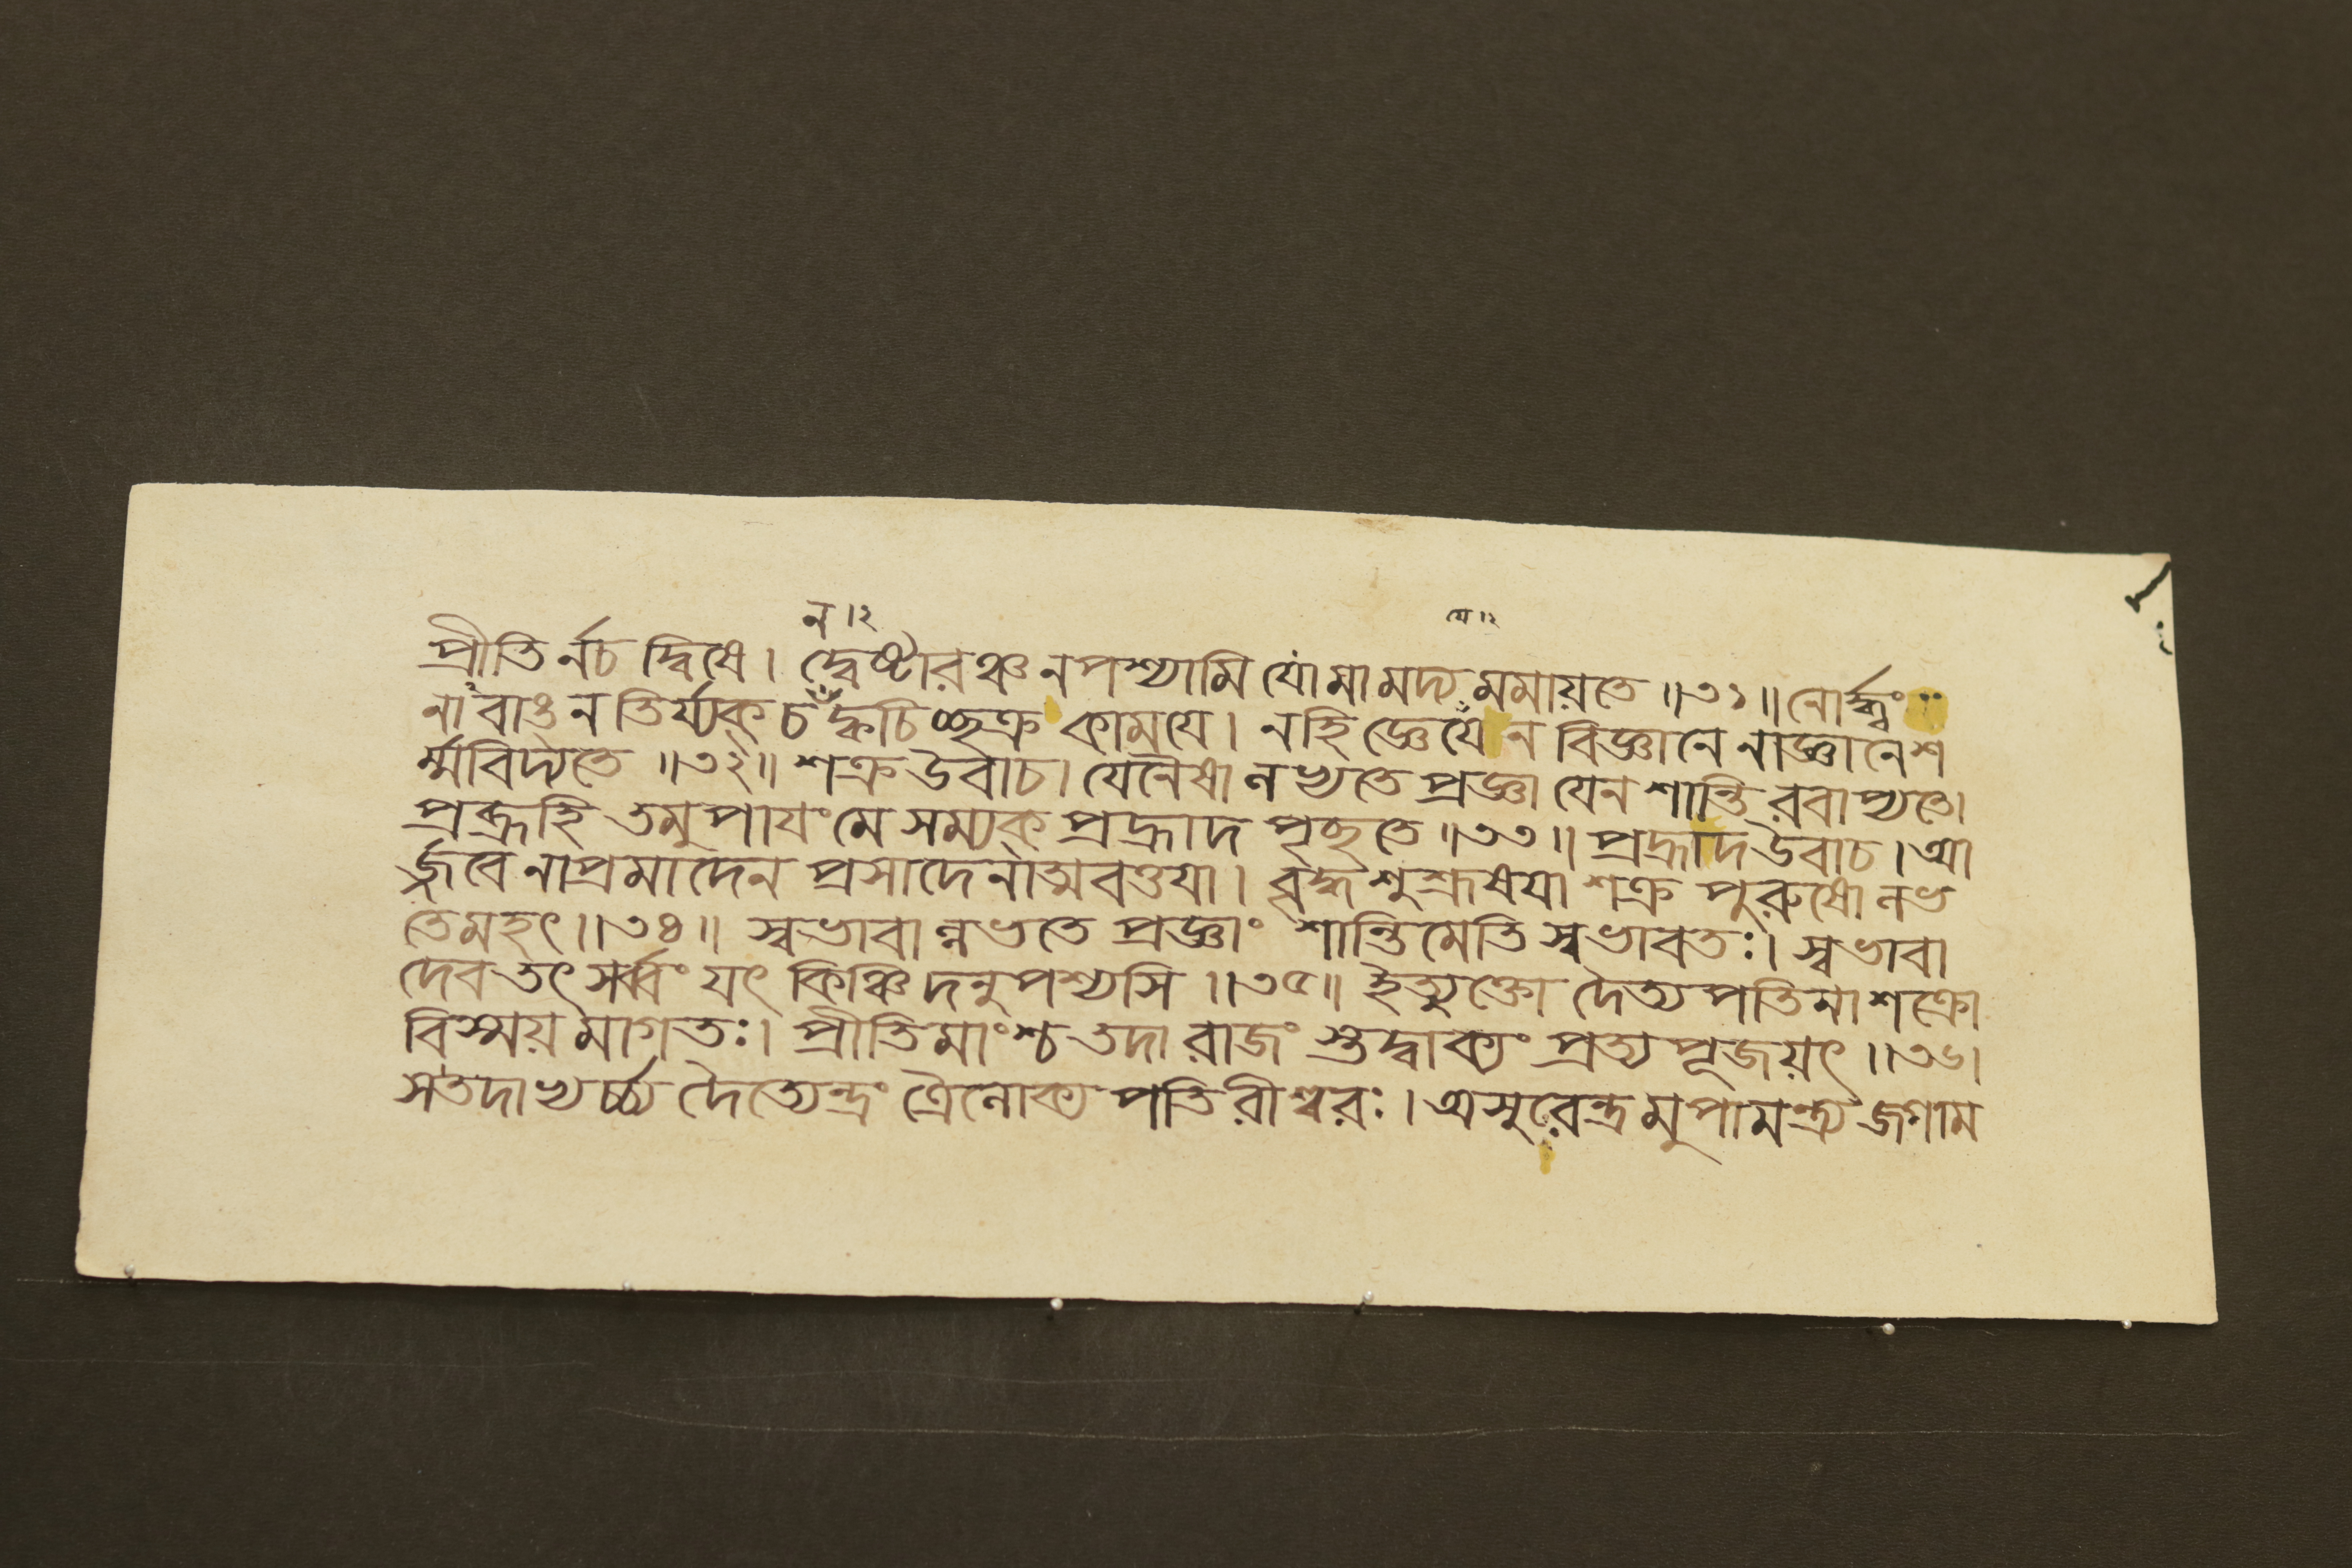 ন ৷২ যে ৷২
প্রীতির্নচ দ্বিষে। দ্বেষ্টারঞ্চ নপশ্যামি যোমামদ্য মমায়তে ॥৩১॥ নোর্দ্ধ্বং
নাবাঙ্ নতির্য্যক্ চ ক্বচিচ্ছক্র কামযে। নহি জ্ঞেযে ন বিজ্ঞানে নাজ্ঞানেশ
র্ম্মবিদ্যতে ॥৩২॥ শক্রউবাচ। যেনৈষা লভ্যতে প্রজ্ঞা যেন শান্তি রবাপ্যতে।
প্রব্রূহি তমুপাযংমে সম্যক্ প্রহ্রাদ পৃচ্ছতে ॥৩৩॥ প্রহ্রাদউবাচ। আ
র্জ্জবেনাপ্রমাদেন প্রসাদেনাত্মবত্তযা। বৃদ্ধশুশ্রূষযা শক্র পুরুষো লভ
তেমহৎ॥৩৪॥ স্বভাবাল্লভতে প্রজ্ঞাং শান্তিমেতি স্বভাবতঃ। স্বভাবা
দেব তৎ সর্ব্বং যৎ কিঞ্চিদনুপশ্যসি ॥৩৫॥ ইত্যুক্তো দৈত্যপতিনা শক্রো
বিস্ময়মাগতঃ। প্রীতিমাংশ্চ তদা রাজং স্তদ্বাক্যং প্রত্যপূজয়ৎ॥৩৬।
সতদাভ্যর্চ্চ্য দৈত্যেন্দ্রং ত্রৈলোক্য পতিরীশ্বরঃ। অসুরেন্দ্রমুপামন্ত্র্য জগাম